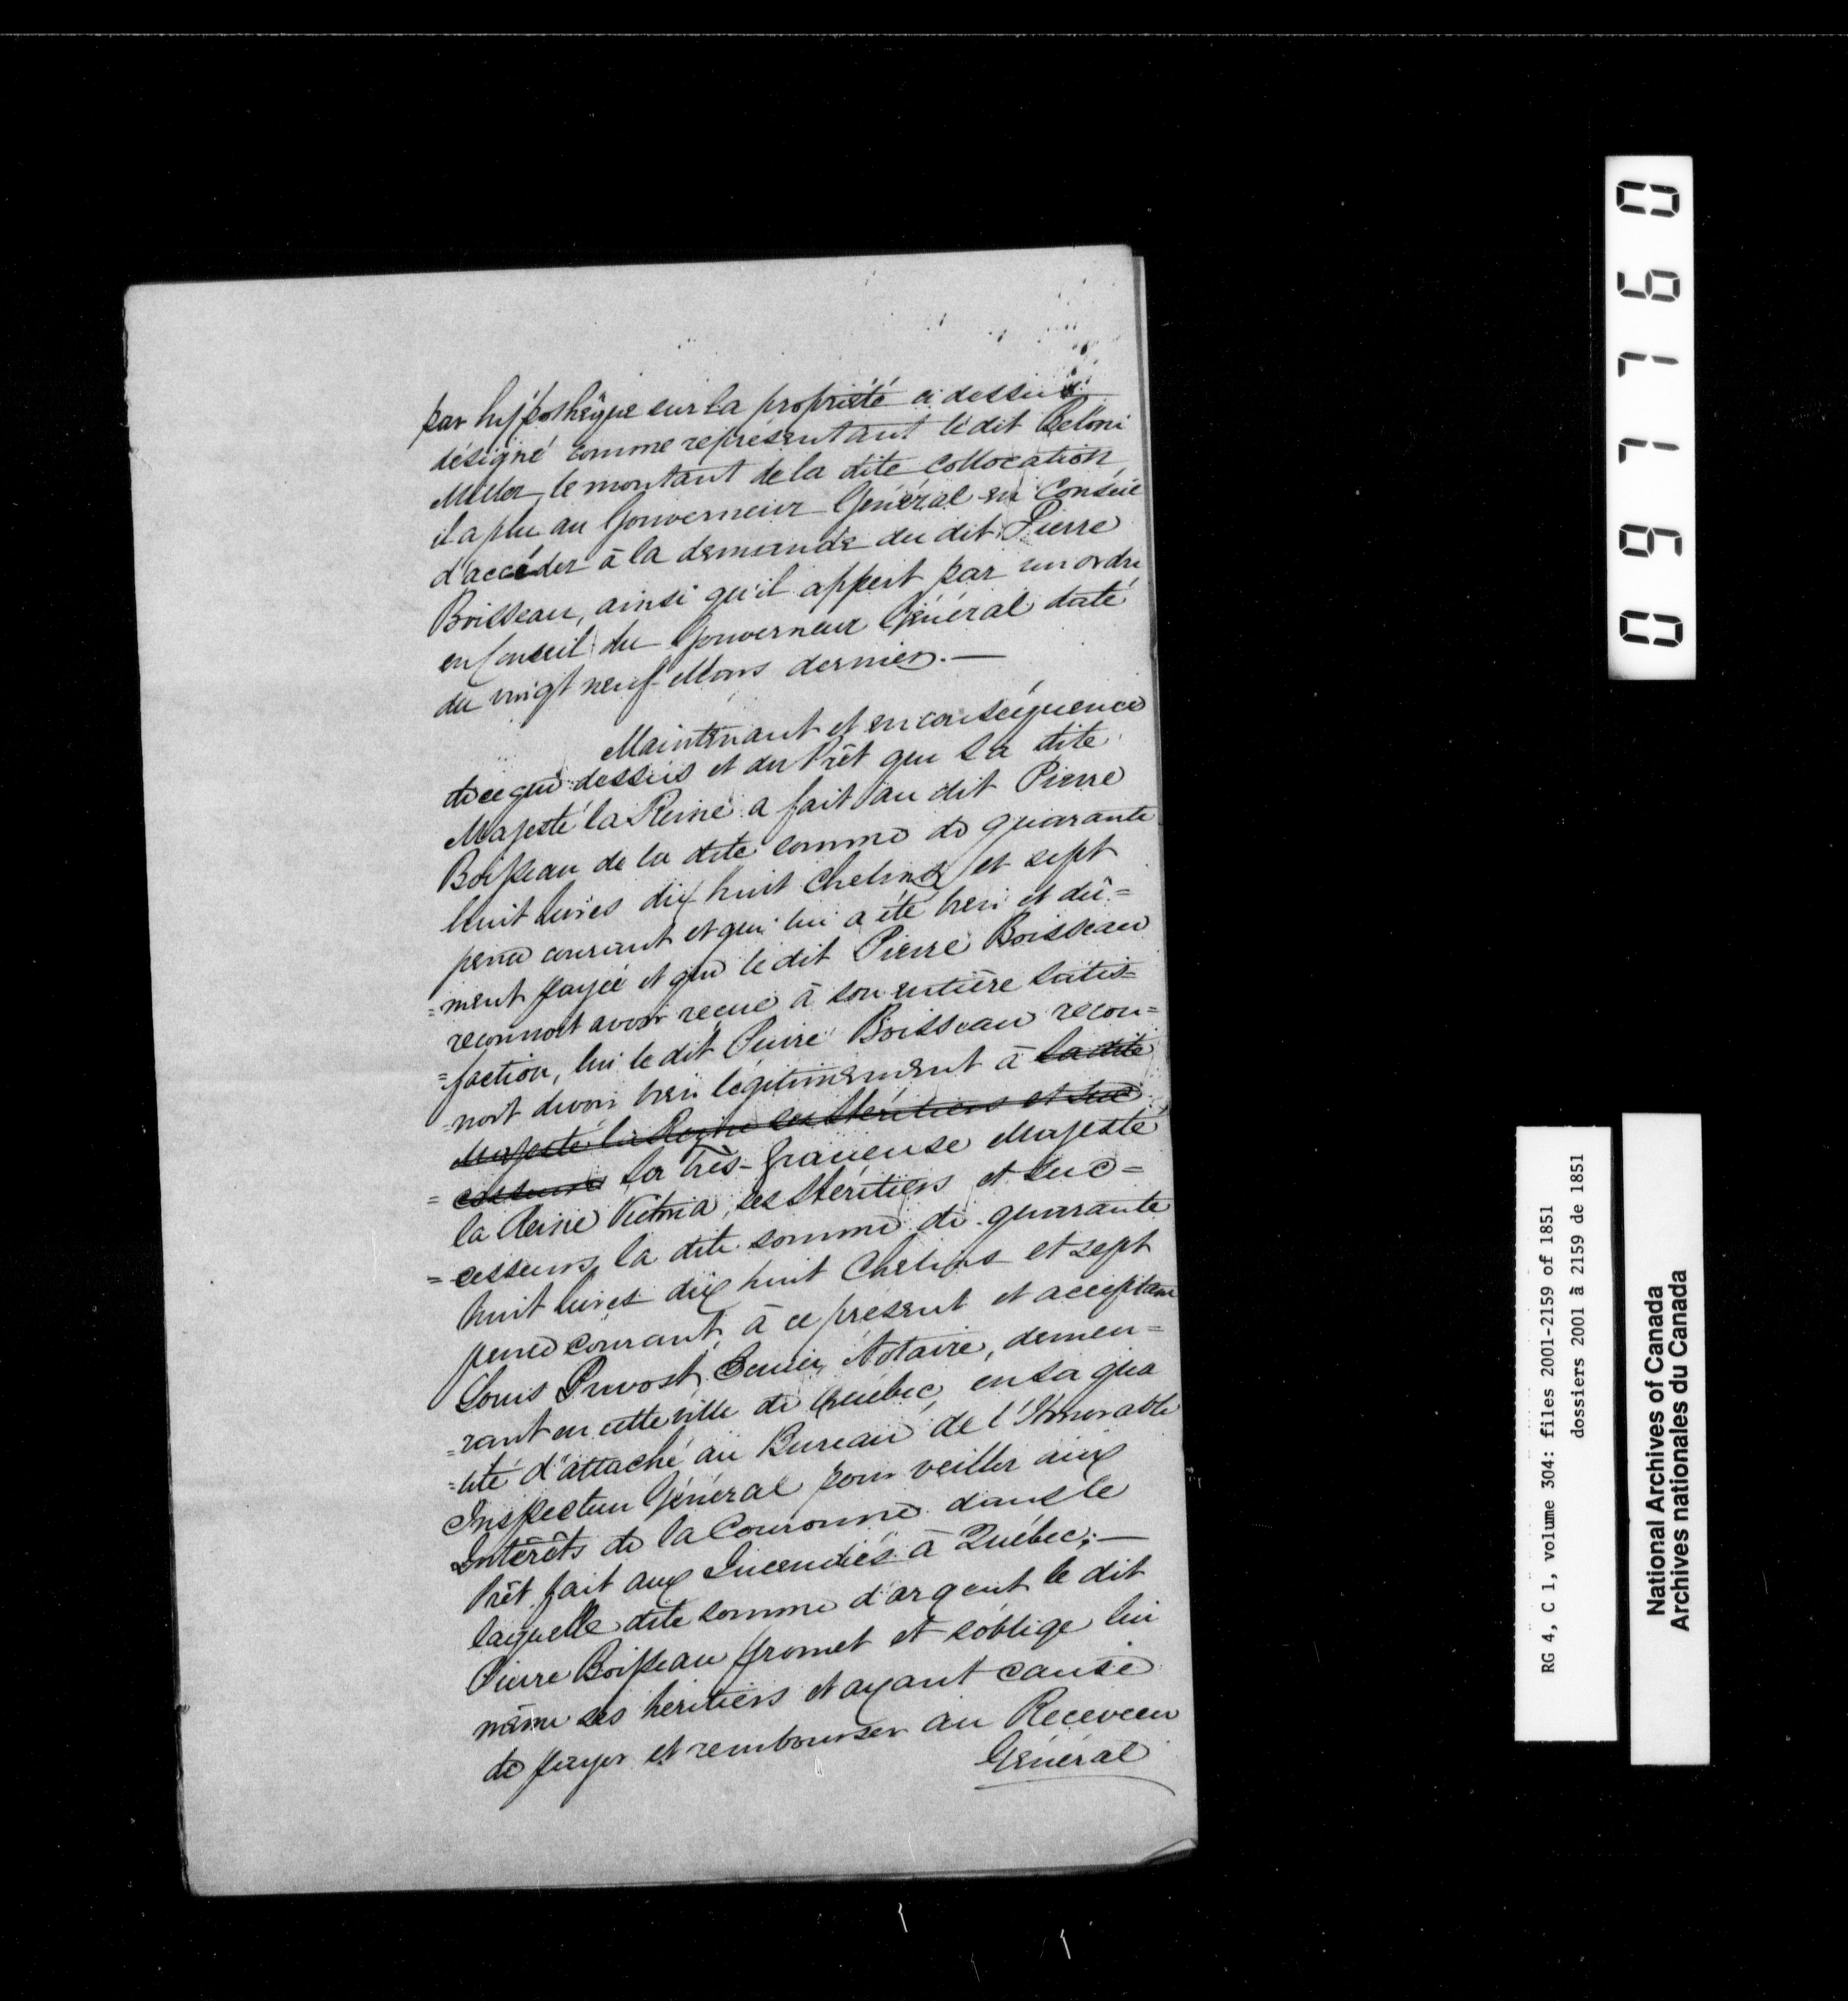 par hypothèque sur la propriété ci dessus
désigné comme représentant ledit Beloni
Miller le montant de la dite collocation,
il a plu au Gouverneur Général en Conseil
d'accéder à la demande du dit Pierre
Boisseau, ainsi qu'il appert par un ordre
en Conseil du Gouverneur Général daté
du vingt neuf Mars dernier. —
Maintenant et en conséquence
de ce que dessus et du Prêt que Sa dite
Majesté la Reine a fait au dit Pierre
Boisseau de la dite somme de quarante
huit livres dix huit Chelins et sept
pence courant et qui lui a été bien et dû=
=ment payée et que le dit Pierre Boisseau
reconnoit avoir reçue à son entière satis=
=faction, lui le dit Pierre Boisseau recon=
=noit devoir bien légitimement à Sa dite
Majesté la Reine ses Héritiers et Suc
=cesseurs Sa très-Gracieuse Majesté
la Reine Victoria, ses Héritiers et Suc=
=cesseurs, la dite somme de quarante
huit livres dix huit Chelins et sept
pence courant, à ce présent et acceptant
Louis Prevost Ecuier, Notaire, demeu=
=rant en cette ville de Québec, en sa qua
=lité d'attaché au Bureau de l'Honorable
Inspecteur Général pour veiller aux
Intérêts de la Couronne dans le
Prêt fait aux Incendiés à Québec; —
laquelle dite somme d'argent le dit
Pierre Boisseau promet et s'oblige lui
même ses héritiers et ayant cause
de payer et rembourser au Receveur
Général
097760
RG 4, C 1, volume 304: files 2001-2159 of 1851
dossiers 2001 à 2159 de 1851
National Archives of Canada
Archives nationales du Canada